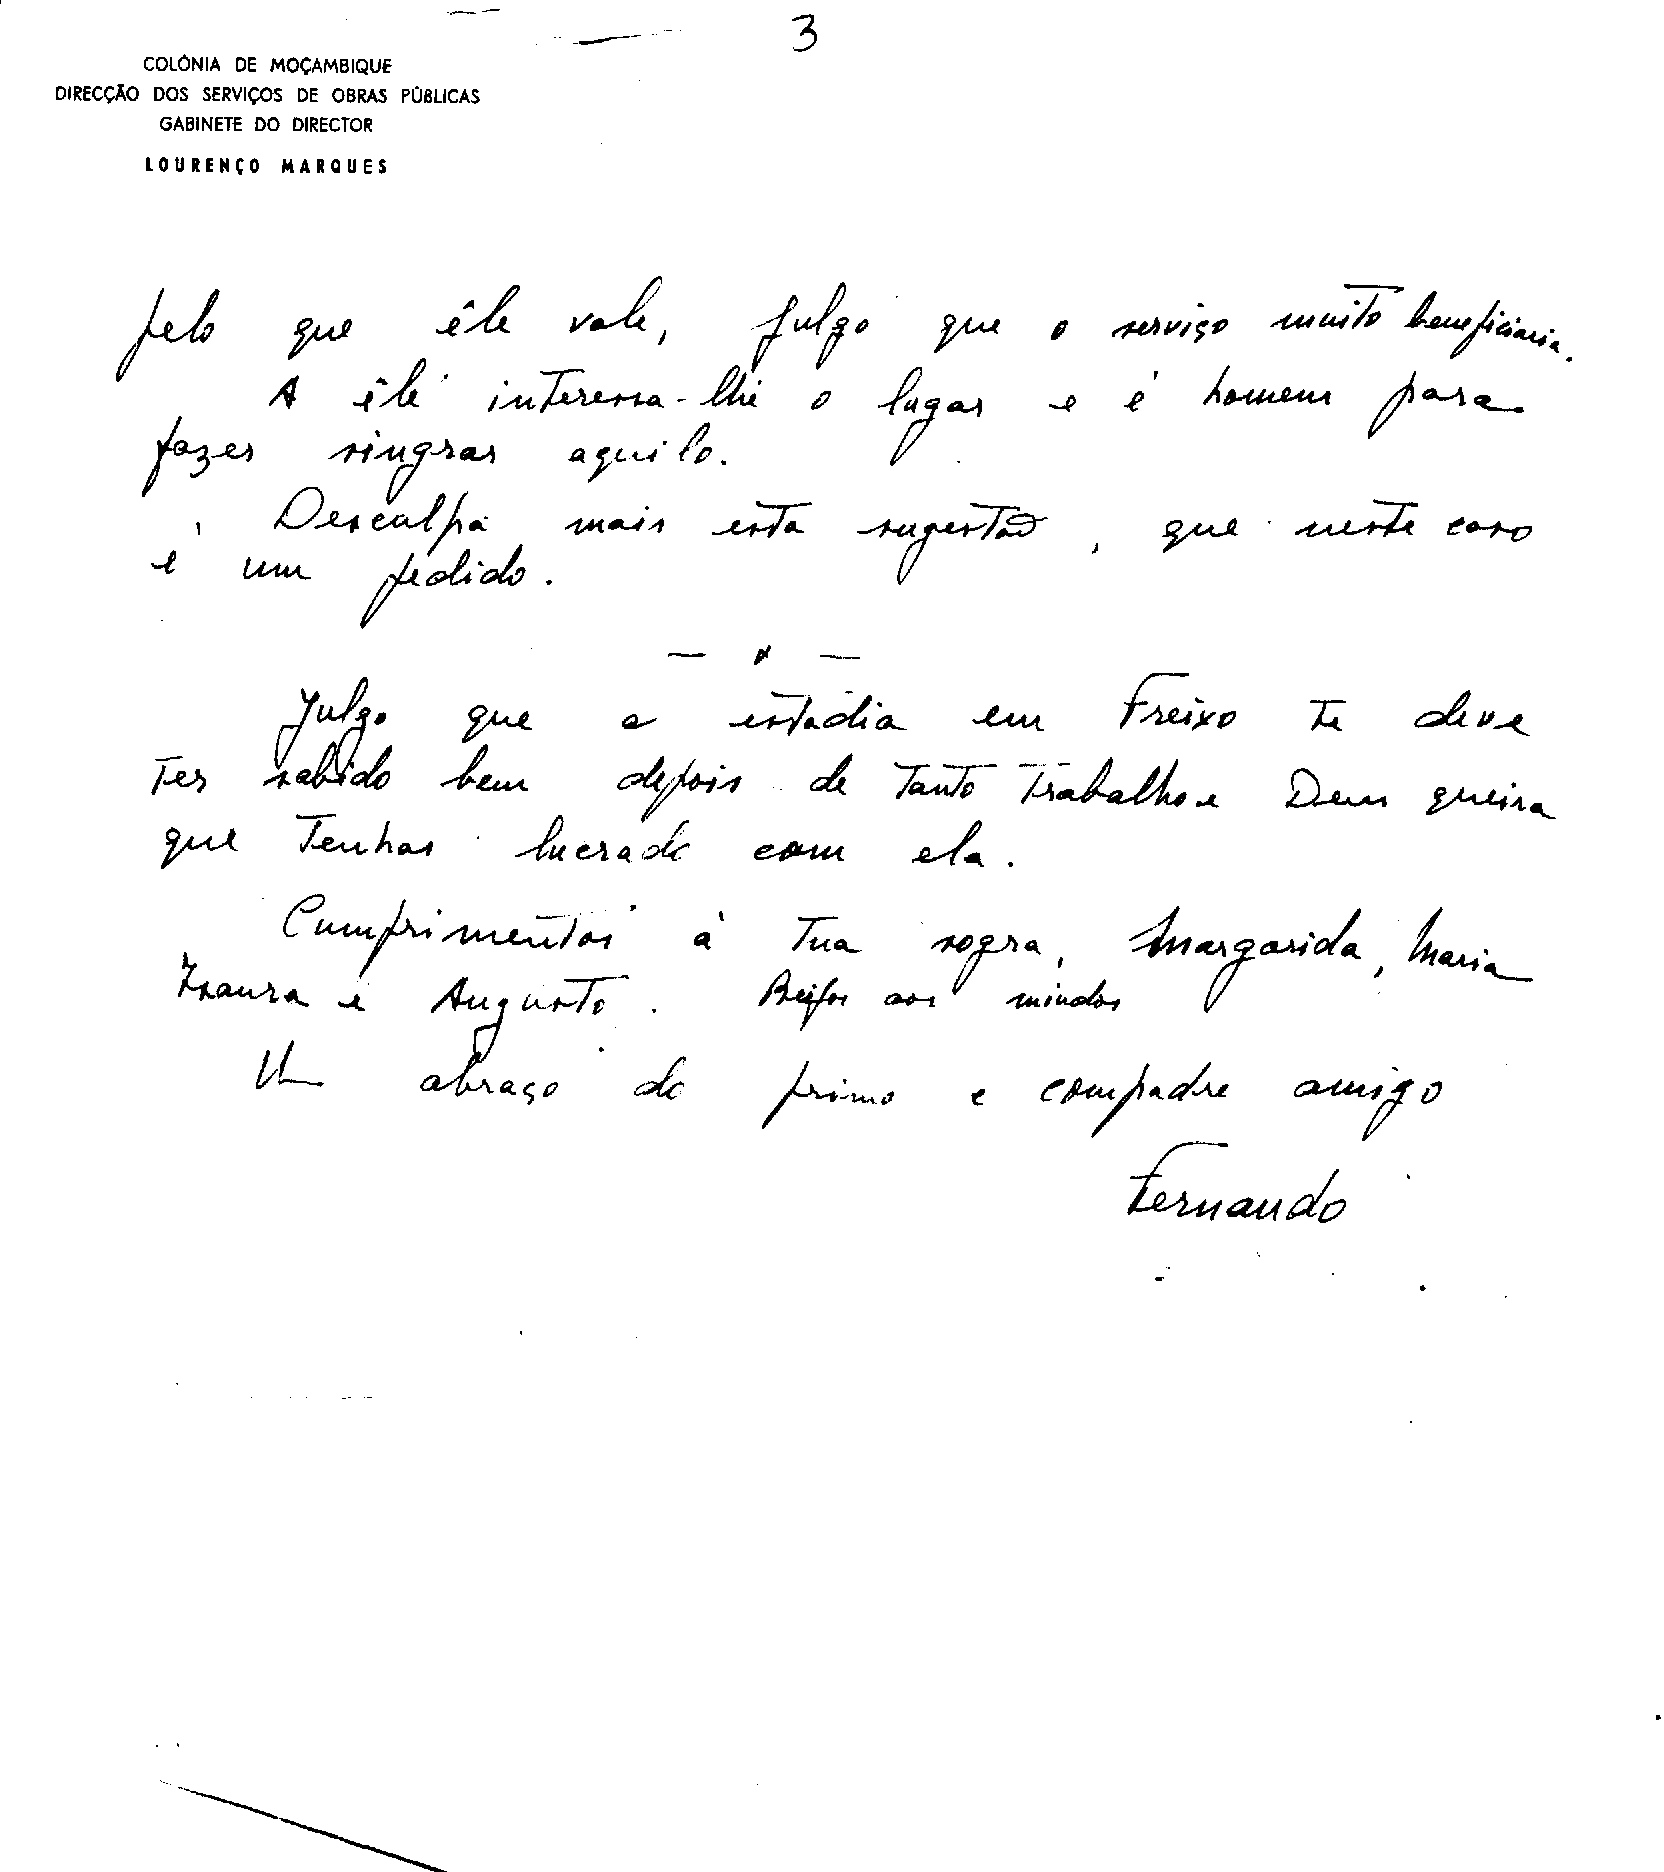 3
COLÓNIA DE MOÇAMBIQUE
DIRECÇÃO DOS SERVIÇOS DE OBRAS PÚBLICAS
GABINETE DO DIRECTOR
LOURENÇO MARQUES
pelo que êle vale, julgo que o serviço muito beneficiaria.
A êle interessa-lhe o lugar e é homem para
fazer singrar aquilo.
Desculpa mais esta sugestão, que neste caso
é um pedido.
— x —
Julgo que a estadia em Freixo te deve
ter sabido bem depois de tanto trabalho e Deus queira
que tenhas lucrado com ela.
Cumprimentos à tua sogra, Margarida, Maria
Isaura e Augusto. Beijos aos miudos
Um abraço do primo e compadre amigo
Fernando